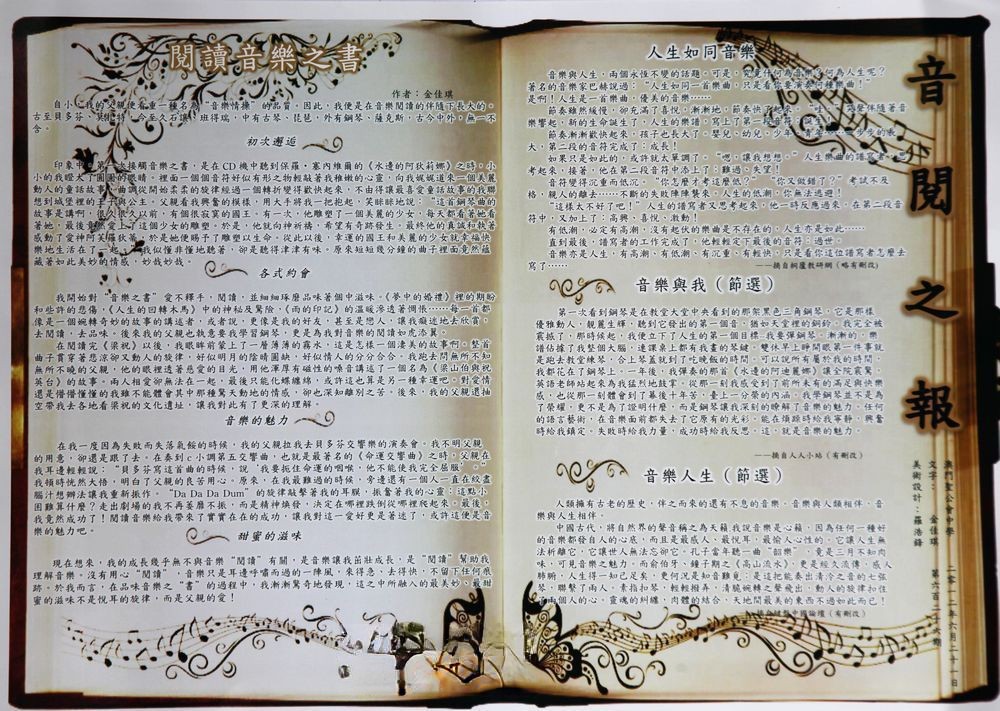 閱讀音樂之書
作者：金佳琪
自小，我的父親便看重一種名為“音樂情操”的品質，因此，我便是在音樂閱讀的伴隨下長大的。
古至貝多芬、莫扎特，今至久石讓、班得瑞，中有古琴、琵琶，外有鋼琴、薩克斯，古今中外，無一不
含。
初次邂逅
印象中，第一次接觸音樂之書，是在CD機中聽到保羅．塞內維爾的《水邊的阿狄莉娜》之時，小
小的我瞪大了圓圓的眼睛，裡面一個個音符好似有形之物輕敲著我稚嫩的心靈，向我娓娓道來一個美麗
動人的童話故事，曲調從開始柔柔的旋律經過一個轉折變得歡快起來，不由得讓最喜愛童話故事的我聯
想到城堡裡的王子與公主。父親看我興奮的模樣，用大手將我一把抱起，笑眯眯地說：“這首鋼琴曲的
故事是講啊，很久很久以前，有個很寂寞的國王。有一次，他雕塑了一個美麗的少女，每天都看著她看
著她，最後竟然愛上了這個少女的雕塑。於是，他就向神祈禱，希望有奇跡發生。最終他的真誠和執著
感動了愛神阿芙羅狄蒂，於是她便賜予了雕塑以生命。從此以後，幸運的國王和美麗的少女就幸福快
樂地生活在了一起。”我似懂非懂地聽著，卻是聽得津津有味，原來短短幾分鐘的曲子裡面竟然蘊
藏著如此美妙的情感，妙哉妙哉。
各式約會
我開始對“音樂之書”愛不釋手，閱讀，並細細琢磨品味著個中滋味。《夢中的婚禮》裡的期盼
和些許的悲傷，《人生的回轉木馬》中的神秘及驚險，《雨的印記》的溫暖滲透著惆悵……每一首都
像是一個婉轉奇妙的故事的講述者，或者說，更像是我的好友，甚至是戀人，讓我癡迷地去欣賞，
去閱讀，去品味。後來我的父親也執意要我學習鋼琴，更是為我對音樂的閱讀如虎添翼。
在閱讀完《梁祝》以後，我眼眸前蒙上了一層薄薄的霧水，這是怎樣一個淒美的故事啊。整首
曲子貫穿著悲涼卻又動人的旋律，好似明月的陰晴圓缺，好似情人的分分合合。我跑去問無所不知
無所不曉的父親，他的眼裡透著慈愛的目光，用他渾厚有磁性的嗓音講述了一個名為《梁山伯與祝
英台》的故事。兩人相愛卻無法在一起，最後只能化蝶纏綿，或許這也算是另一種幸運吧。對愛情
還是懵懵懂懂的我雖不能體會其中那種驚天動地的情感，卻也深知離別之苦。後來，我的父親還抽
空帶我去各地看梁祝的文化遺址，讓我對此有了更深的理解。
音樂的魅力
在我一度因為失敗而失落氣餒的時候，我的父親拉我去貝多芬交響樂的演奏會。我不明父親
的用意，卻還是跟了去。在奏到c小調第五交響曲，也就是最著名的《命運交響曲》之時，父親在
我耳邊輕輕說：“貝多芬寫這首曲的時候，說‘我要扼住命運的咽喉，他不能使我完全屈服’。”
我頓時恍然大悟，明白了父親的良苦用心。原來，在我最難過的時候，旁邊還有一個人一直在絞盡
腦汁想辦法讓我重新振作。“Da Da Da Dum”的旋律敲擊著我的耳膜，振奮著我的心靈：這點小
困難算什麼？走出劇場的我不再萎靡不振，而是精神煥發，決定在哪裡跌倒從哪裡爬起來。最後，
我竟然成功了！閱讀音樂給我帶來了實實在在的成功，讓我對這一愛好更是著迷了，或許這便是音
樂的魅力吧。
甜蜜的滋味
現在想來，我的成長幾乎無不與音樂“閱讀”有關，是音樂讓我茁壯成長，是“閱讀”幫助我
理解音樂。沒有用心“閱讀”，音樂只是耳邊呼嘯而過的一陣風，來得急，去得快，不留下任何痕
跡。於我而言，在品味音樂之“書”的過程中，我漸漸驚奇地發現，這之中所融入的最美妙、最甜
蜜的滋味不是悅耳的旋律，而是父親的愛！
人生如同音樂
音樂與人生，兩個永恆不變的話題。可是，究竟什何為音樂？何為人生呢？
著名的音樂家巴赫說過：“人生如同一首樂曲，只是看你要演奏何種樂曲！”
是啊！人生是一首樂曲，優美的音樂……
節奏雖然緩慢，卻充滿了喜悅，漸漸地，節奏快了起來，
樂響起，新的生命誕生了，人生的樂譜，寫上了第一段音符：誕生！
節奏漸漸歡快起來，孩子也長大了。嬰兒，幼兒，少年，青年……一步步的長
大，第二段的音符完成了：成長！
如果只是如此的，或許就太單調了。“嗯，讓我想想。”人生樂曲的譜寫者，思
考起來，接著，他在第二段音符中添上了：難過，失望！
音符變得沉重而低沉。“你怎麼才考這麼低？”“你又做錯了？”考試不及
格，親人的離去……不斷的失敗陣陣襲來，人生的低潮，你無法逃避！
“這樣太不好了吧！”人生的譜寫者又思考起來，他一時反應過來，在第二段音
符中，又加上了：高興，喜悅，激動！
有低潮，必定有高潮，沒有起伏的樂曲是不存在的，人生亦是如此……
直到最後，譜寫者的工作完成了，他輕輕定下最後的音符：過世。
音樂亦是人生，有高潮、有低潮、有沉重、有輕快，只是看你這位譜寫者怎麼去
寫了……
——摘自桐廬教研網（略有刪改）
音樂與我（節選）
第一次看到鋼琴是在教堂大堂中央看到的那架黑色三角鋼琴，它是那樣
優雅動人，靚麗生輝，聽到它發出的第一個音，猶如天堂裡的銅鈴。我完全被
震撼了，那時候起，我便立下了人生的第一個目標-我要彈鋼琴。漸漸的，樂
譜佔據了我整個大腦，連課桌上都有我畫的琴鍵，雙休早上睜開眼第一件事就
是跑去教堂練琴，合上琴蓋就到了吃晚飯的時間。可以說所有屬於我的時間，
我都花在了鋼琴上。一年後，我彈奏的那首《水邊的阿迪麗娜》讓全院震驚，
英語老師站起來為我猛烈地鼓掌，從那一刻我感受到了前所未有的滿足與快樂
感，也從那一刻體會到了幕後十年苦，臺上一分榮的內涵。我學鋼琴並不是為
了榮耀，更不是為了證明什麼，而是鋼琴讓我深刻的瞭解了音樂的魅力。任何
的語言藝術，在音樂面前都失去了它原有的光彩，能在煩躁時給我寧靜，興奮
時給我鎮定，失敗時給我力量，成功時給我反思，這，就是音樂的魅力。
——摘自人人小站（有刪改）
音樂人生（節選）
人類擁有古老的歷史，伴之而來的還有不息的音樂，音樂與人類相伴，音
樂與人生相伴。
中國古代，將自然界的聲音稱之為天籟，我說音樂是心籟，因為任何一種好
的音樂都發自人的心底，而且是最感人、最悅耳、最愉人心性的，它讓人生無
法祈離它，它讓世人無法忘卻它，孔子當年聽一曲“韶樂”，竟是三月不知肉
味，可見音樂之魅力。而俞伯牙，鐘子期之《高山流水》，更是經久流傳，感人
肺腑，人生得一知己足矣，更何況是知音難覓，是這把能奏出清泠之音的七弦
琴，聯繫了兩人，素指扣琴，輕輕撥弄，清脆婉轉之聲飛出，動人的旋律扣住
了兩個人的心，靈魂的糾纏，肉體的結合，天地間最美的東西不過如此而已！
（有刪改）
音閱之報
澳門聖公會中學
文字：金佳琪
美術設計：羅浩鋒
第六百二十六期
二零一二年六月二十一日